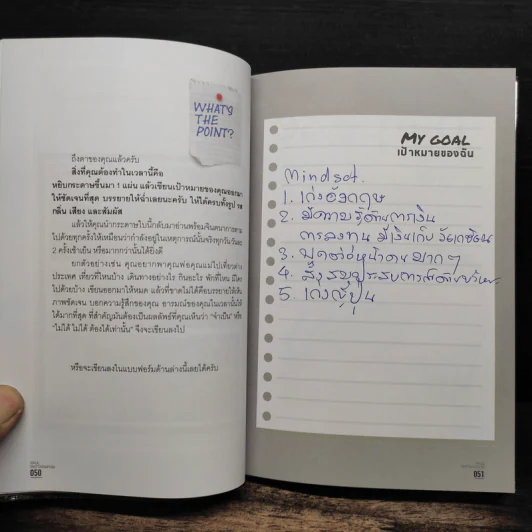 WHAT'S
THE
POINT?
ถึงตาของคุณแล้วครับ
สิ่งที่คุณต้องทำในเวลานี้คือ
หยิบกระดาษขึ้นมา 1 แผ่น แล้วเขียนเป้าหมายของคุณออกมา
ให้ชัดเจนที่สุด บรรยายให้ฉ่ำเลยนะครับ ให้ได้ครบทั้งรูป รส
กลิ่น เสียง และสัมผัส
แล้วให้คุณนำกระดาษใบนี้กลับมาอ่านพร้อมจินตนาการตาม
ไปด้วยทุกครั้งให้เหมือนว่ากำลังอยู่ในเหตุการณ์นั้นจริงๆ ทุกวัน วันละ
2 ครั้งเช้าเย็น หรือมากกว่านั้นได้ยิ่งดี
ยกตัวอย่างเช่น คุณอยากพาคุณพ่อคุณแม่ไปเที่ยวต่าง
ประเทศ เที่ยวที่ไหนบ้าง เดินทางอย่างไร กินอะไร พักที่ไหน มีใคร
ไปด้วยบ้าง เขียนออกมาให้หมด แล้วที่ขาดไม่ได้คือบรรยายให้เห็น
ภาพชัดเจน บอกความรู้สึกของคุณ อารมณ์ของคุณในเวลานั้นให้
ได้มากที่สุด ที่สำคัญมันต้องเป็นผลลัพธ์ที่คุณเห็นว่า "จำเป็น" หรือ
"ไม่ได้ ไม่ได้ ต้องได้เท่านั้น" จึงจะเขียนลงไป
หรือจะเขียนลงในแบบฟอร์มด้านล่างนี้เลยได้ครับ
050
MY GOAL
เป้าหมายของฉัน
Mindset.
1. เก่งอังกฤษ
2. มีความรู้ด้านการเงิน
การลงทุน มีเงินเก็บ
3. พูดต่อหน้าคนมากๆ
4.
5. เก่งญี่ปุ่น
051